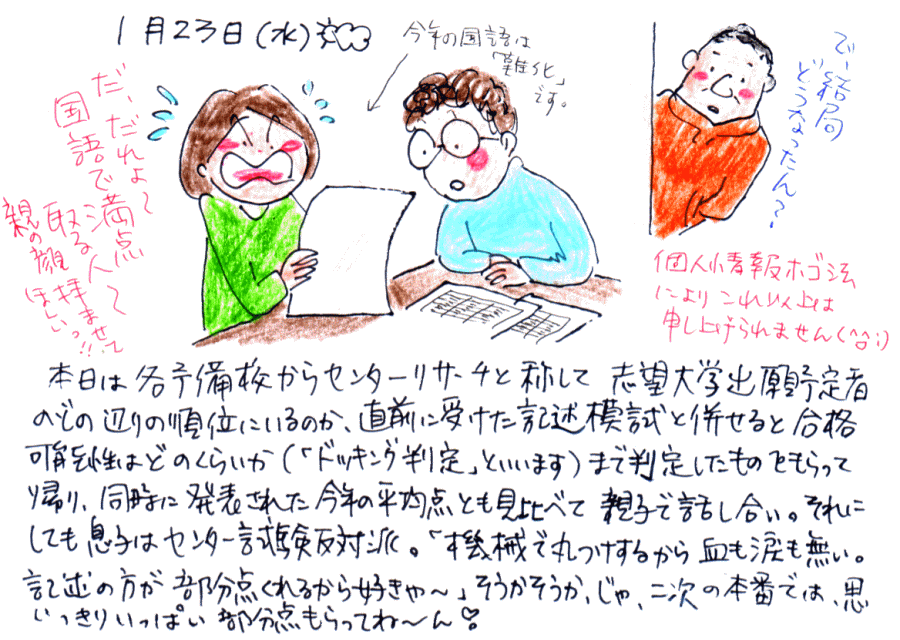 1月23日(水)
今年の国語は
「難化」
です。
だ、だれよ〜
国語で満点
取る人〜
親の顔拝ませて
ほしいっ!!
で、結局
どうなったん?
個人情報ホゴ法
によりこれ以上は
申し上げられません(^o^;)
本日は各予備校からセンターリサーチと称して志望大学出願予定者
のどの辺りの順位にいるのか、直前に受けた記述模試と併せると合格
可能性はどのくらいか(「ドッキング判定」といいます)まで判定したものをもらって
帰り、同時に発表された今年の平均点とも見比べて親子で話し合い。それに
しても息子はセンター試験反対派。「機械で丸つけするから血も涙も無い。
記述の方が部分点くれるから好きや〜」そうかそうか、じゃ、二次の本番では、思
いっきりいっぱい部分点もらってね〜ん♡